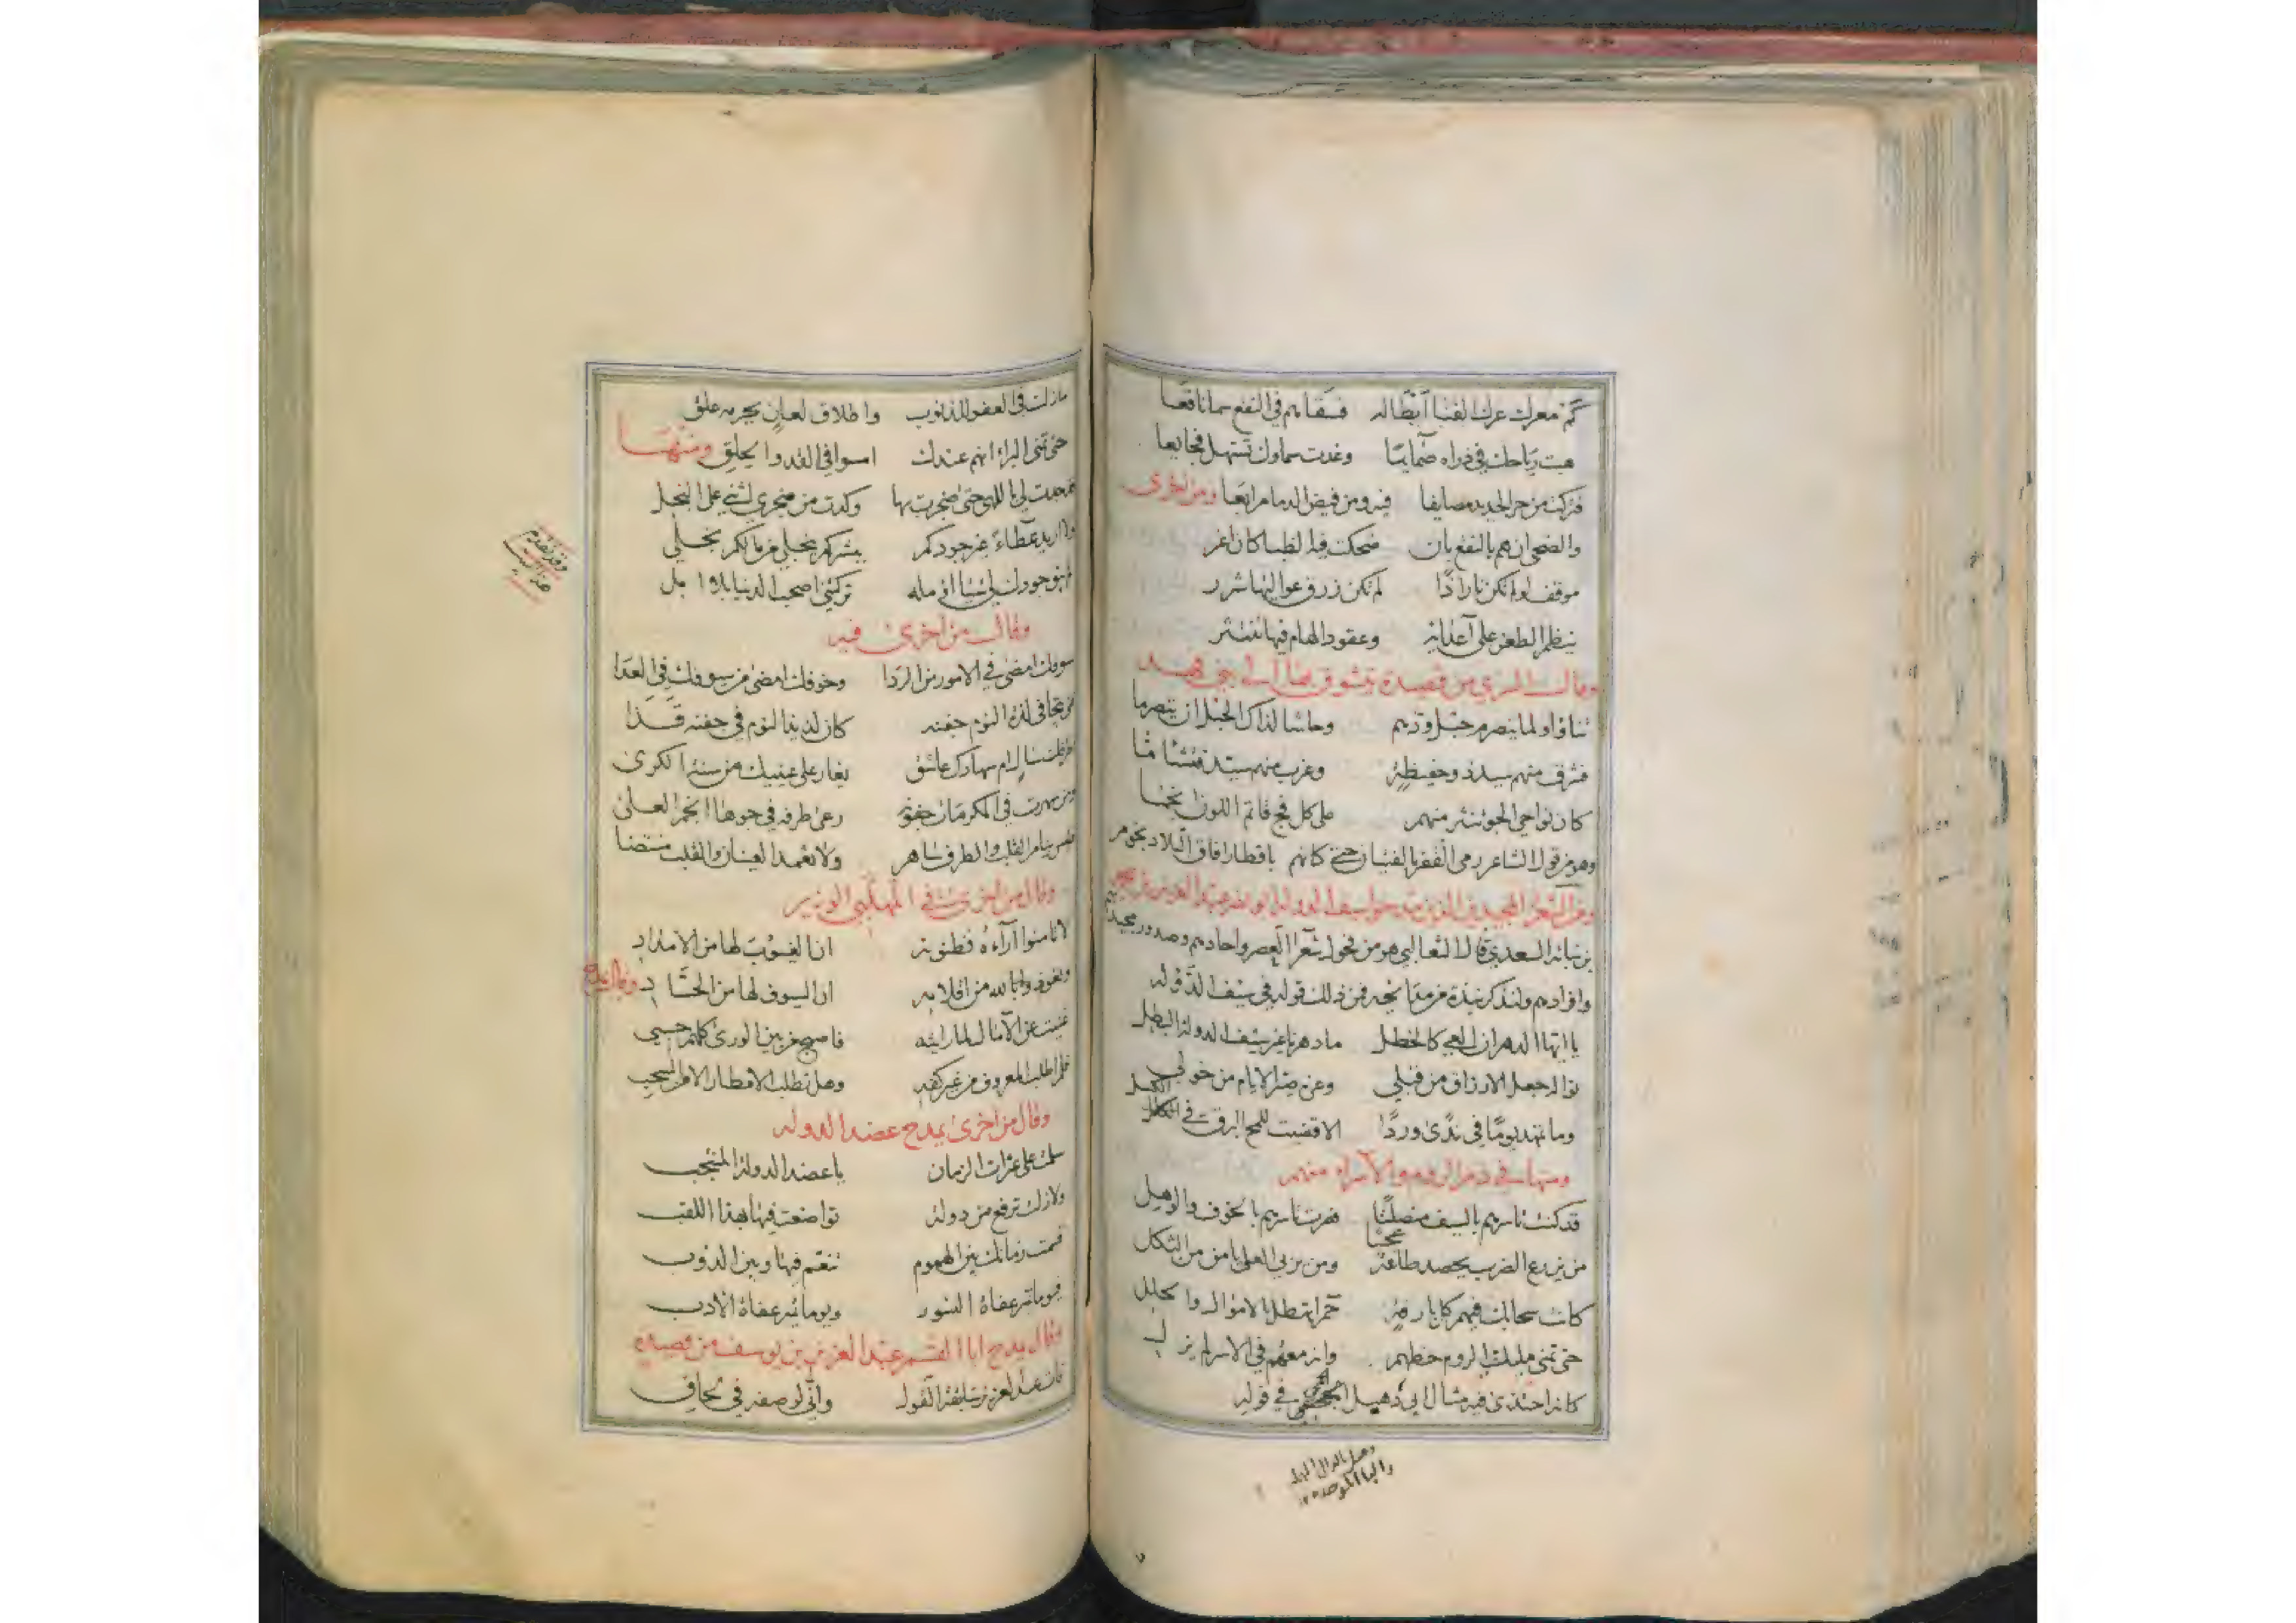 كم معرك عرك القنا أبطاله فسقاهم في النقع سما ناقعا
هبت رياحك في ذراه سمايما وغدت سماوك تستهل فجايعا
فتركت من حر الحديد مصايفا فيه ومن فيض الدما مرابعا ومن اخرى
والضحى ادهم بالنقع فان ضحكت فيه الظبا كان اغر
موقف لو لم تكن نارا اذا لم تكن زرق عواليها شرر
ينظم الطعن على أعدائه وعقود الهام فيها تنتثر
وقال السري من قصيدة يتشوق بها الى بني فهد
تناؤا ولما ينصرم حبل ودهم وحاشا لذاك الحبل ان يتصرما
فشرق منهم سيد ذو حفيظة وغرب منهم سيد فتشاما
كان نواحي الجو تنثر منهم على كل فج قاتم اللون انجما
وهو من قول الشاعر رمى القفر بالفتيان حتى كانهم باقطار افاق البلاد نجوم
ومن الشعراء المجيدين الذين مدحوا سيف الدولة ابو نصر عبد العزيز بن محمد
بن نباته السعدي قال الثعالبي هو من فحول شعرا العصر واحادهم وصدور مجيديهم
وافرادهم ولنذكر نبذة من مدايحه فمن ذلك قوله في سيف الدوله
يا ايها الدهر ان العي كالخطل ما دهرنا غير سيف الدولة البطل
نواله جعل الارزاق من قبلي وعزه صير الايام من خولي
وما تهديوما في ندى وردا الا قضيت للمح البرق في الكلل
ومنها في ذم الروم والأسراء منهم
قد كنت تاسرهم بالسيف منصلتا فصرت تاسرهم بالخوف والوهل
من يزرع الضرب يحصد طاعة عجبا ومن يربي العلى يامن من الثكل
كانت سحابك فيهم كل بارقة حمرا تمطل بالاموال والحلل
حتى تمنى مليك الروم حظهم وانه معهم في الاسر لم يزل
كانه احتذى فيه مثال ابي دهبل الجمحي في قوله
دهبل بالدال المهمله
والبا الموحده
ما زلت في العفو للذنوب واطلاق لعان بجرمه علق
حتى تمنى البراء انهم عندك امسوا في القد والحلق ومنها
قد جدت لي باللهى حتى ضجرت بها وكدت من ضجري اثني على البخل
لم يبق جودك لي شيئا اؤمله تركتني اصحب الدنيا بلا امل
وقد تقدم
هذا البيت
وقال من اخرى فيه
سيوفك امضى في الامور من الردا وخوفك امضى من سيوفك في العدا
فتى يتجافى لذة النوم جفنه كان لذيذ النوم في جفنه قذا
يغار على عينيك من سنة الكرى
ومن سهرت في المكرمات جفونه رعى طرفه في جوها انجم العلى
ولا تغمد العينان والقلب منتضا
وقال من اخرى في المهلبي الوزير
لا تامنوا آراءه فظنونه ان الغيوب لها من الامداد
وتعوذوا بالله من اقلامه ان السيوف لها من الحساد وقال يمدح
غنيت عن الآمال لما رايته فاصبح من بين الورى كلهم حسبي
فلم اطلب المعروف من غير كفه وهل تطلب الامطار الا من السحب
وقال من اخرى يمدح عضد الدوله
سلمت على عثرات الزمان يا عضد الدولة المنتجب
ولا زلت ترفع من دولة تواضعت فيها بهذا اللقب
قسمت زمانك بين الهموم تنعم فيها وبين الدؤب
فيوما تمير عفاة النسور ويوما تمير عفاة الادب
وقال يمدح ابا القسم عبد العزيز بن يوسف من قصيدة
فان عبد العزيز سابقة القول واني لوصفه في لحاف